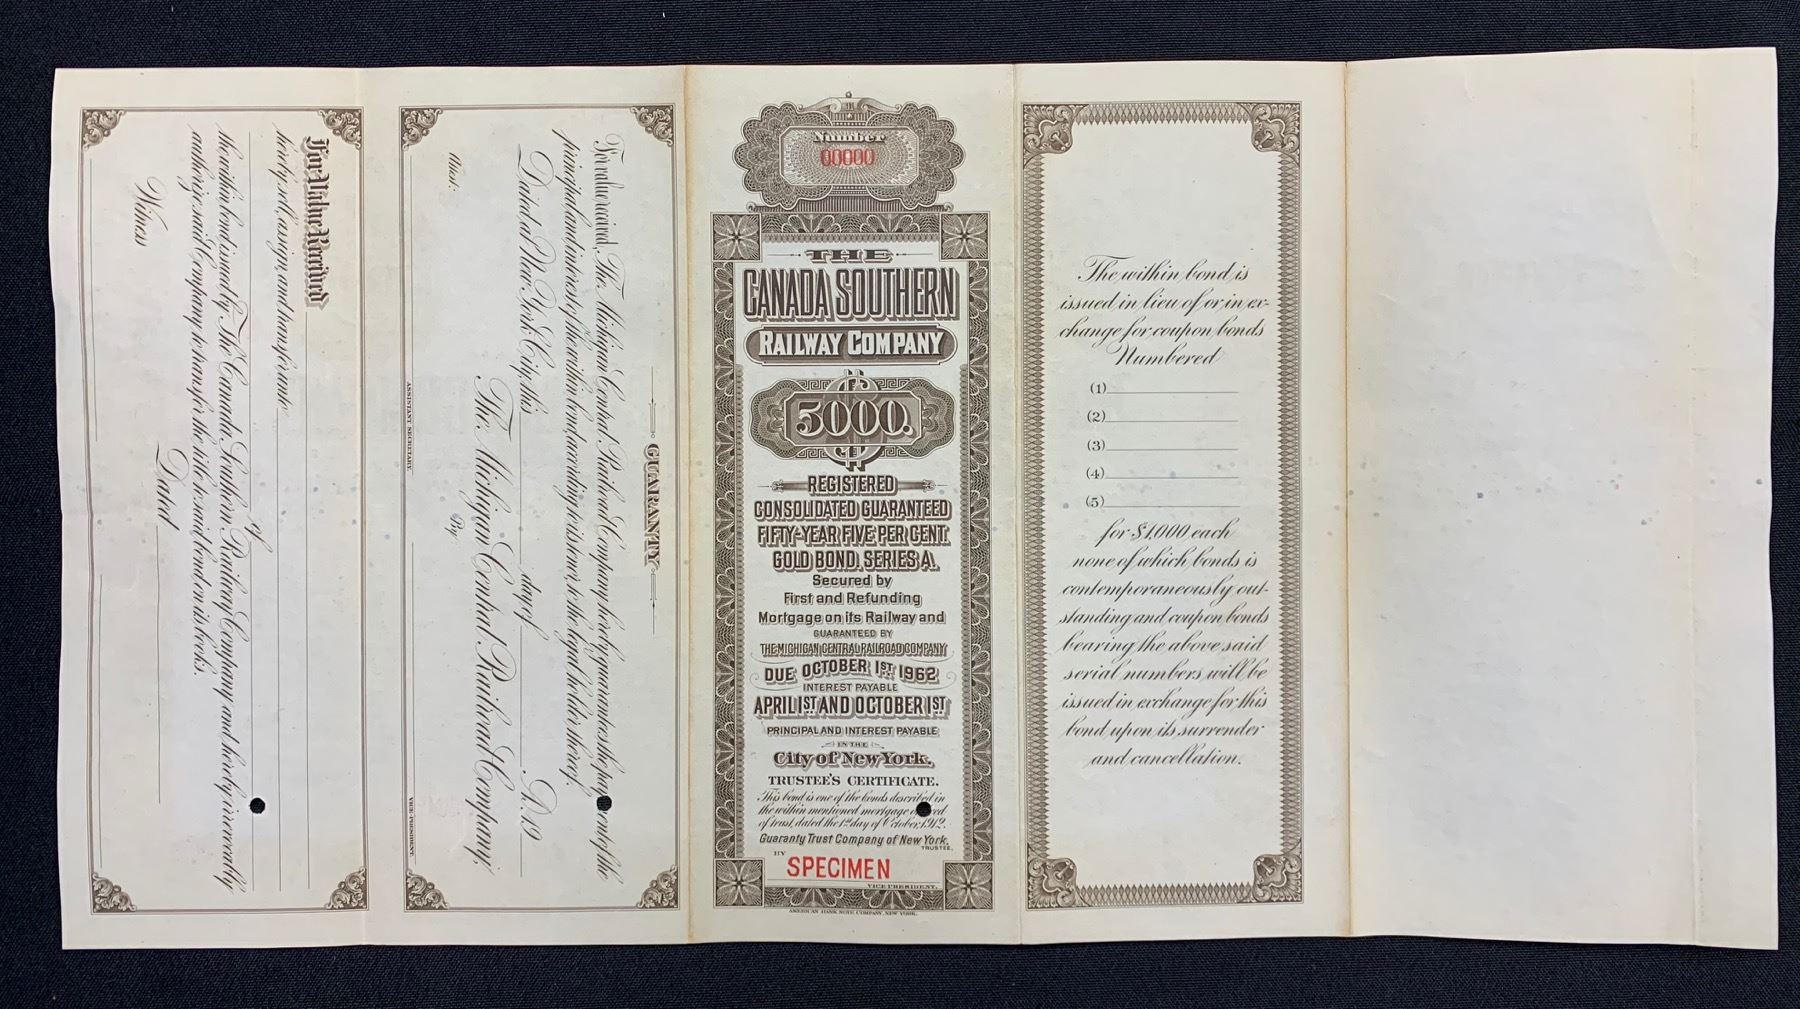 For Value Received
hereby sell, assign, and transfer unto
of
the within bond issued by The Canada Southern Railway Company and hereby irrevocably
authorize said Company to transfer the title to said bond on its books.
Dated
Witness
GUARANTY
For value received, The Michigan Central Railroad Company hereby guarantees the payment of the
principal and interest of the within bond according to its tenor, to the legal holder thereof.
Dated at New York City, this day of A.D. 19
The Michigan Central Railroad Company,
By
VICE-PRESIDENT.
Attest:
ASSISTANT SECRETARY.
Number
00000
THE
CANADA SOUTHERN
RAILWAY COMPANY
$
5000.
REGISTERED
CONSOLIDATED GUARANTEED
FIFTY-YEAR FIVE PER CENT.
GOLD BOND, SERIES A.
Secured by
First and Refunding
Mortgage on its Railway and
GUARANTEED BY
THE MICHIGAN CENTRAL RAILROAD COMPANY
DUE OCTOBER 1ST 1962
INTEREST PAYABLE
APRIL 1ST AND OCTOBER 1ST
PRINCIPAL AND INTEREST PAYABLE
IN THE
City of New York.
TRUSTEE'S CERTIFICATE.
This bond is one of the bonds described in
the within mentioned mortgage or deed
of trust, dated the 1st day of October, 1912.
Guaranty Trust Company of New York,
TRUSTEE,
BY
SPECIMEN
VICE PRESIDENT.
AMERICAN BANK NOTE COMPANY, NEW YORK.
The within bond is
issued in lieu of or in ex-
change for coupon bonds
Numbered
(1)
(2)
(3)
(4)
(5)
for $1,000 each
none of which bonds is
contemporaneously out-
standing and coupon bonds
bearing the above said
serial numbers will be
issued in exchange for this
bond upon its surrender
and cancellation.